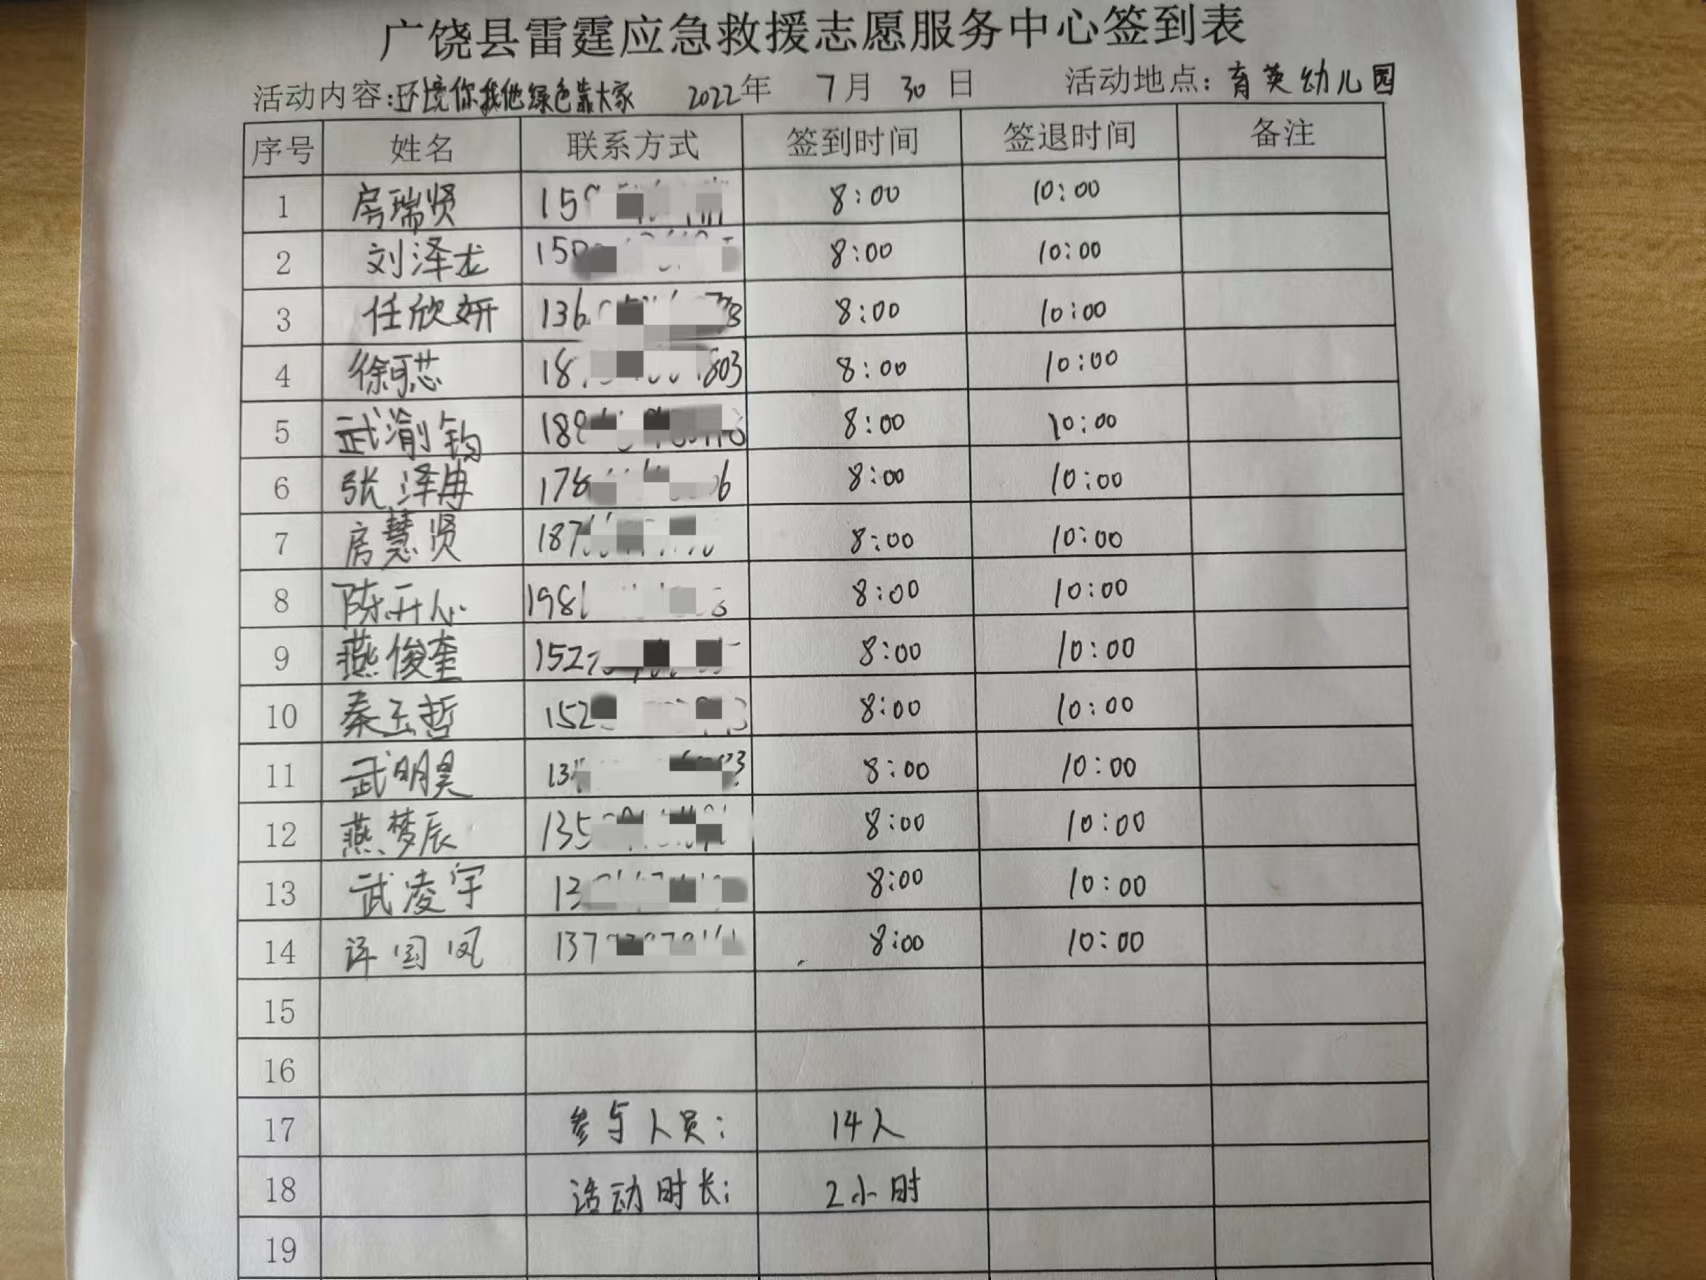 广饶县雷霆应急救援志愿服务中心签到表
活动内容:环境你我他绿色靠大家 2022年 7月30日 活动地点:育英幼儿园
序号 姓名 联系方式 签到时间 签退时间 备注
1 房瑞贤 8:00 10:00
2 刘泽龙 8:00 10:00
3 任欣妍 136 8:00 10:00
4 徐可芯 18 803 8:00 10:00
5 武渝钧 8:00 10:00
6 张泽冉 178 6 8:00 10:00
7 房慧贤 187 8:00 10:00
8 陈开心 198 8:00 10:00
9 燕俊奎 152 8:00 10:00
10 秦玉哲 152 8:00 10:00
11 武明昊 8:00 10:00
12 燕梦辰 135 8:00 10:00
13 武凌宇 13 8:00 10:00
14 许国凤 137 8:00 10:00
15
16
17 参与人员: 14人
18 活动时长: 2小时
19